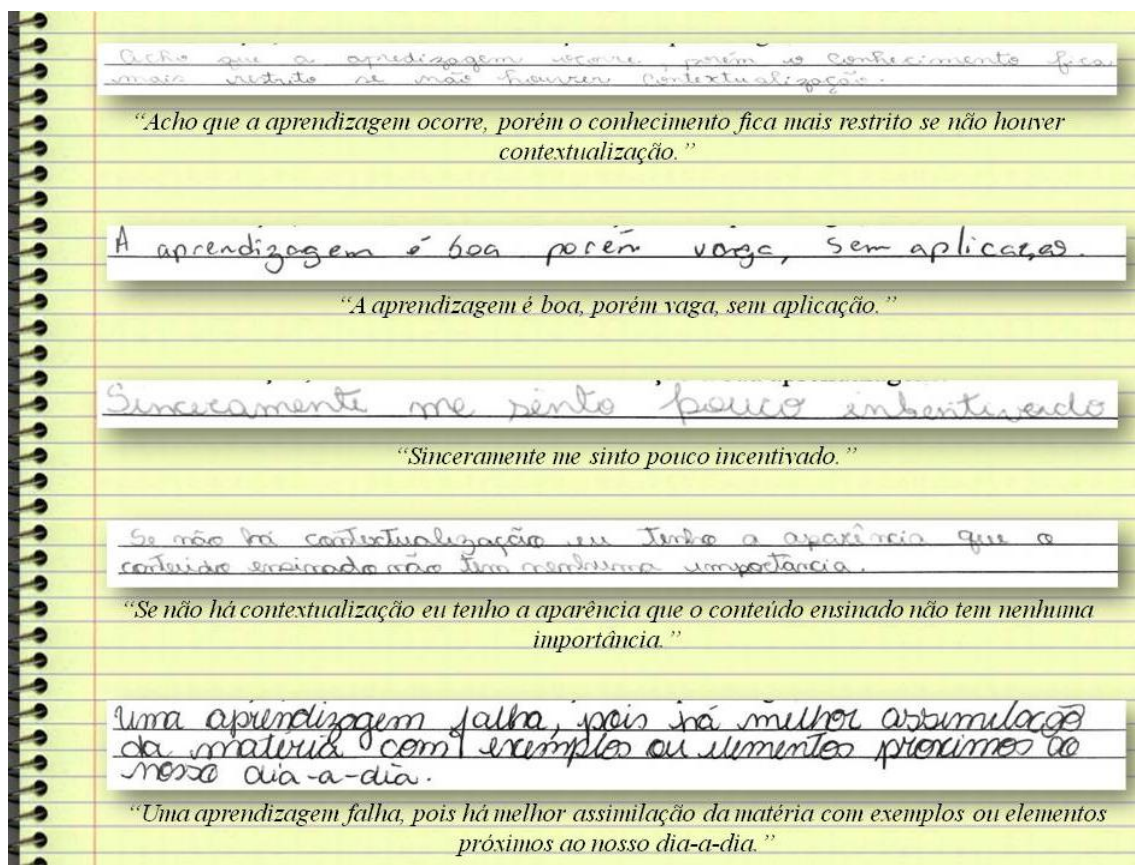 Acho que a apredizagem ocorre, porém o conhecimento fica
mais restrito se não houver contextualização.
“Acho que a aprendizagem ocorre, porém o conhecimento fica mais restrito se não houver
contextualização.”
A aprendizagem é boa porém vaga, sem aplicação.
“A aprendizagem é boa, porém vaga, sem aplicação.”
Sinceramente me sinto pouco insentivado
“Sinceramente me sinto pouco incentivado.”
Se não há contextualização eu tenho a aparência que o
conteúdo ensinado não tem nenhuma importância.
“Se não há contextualização eu tenho a aparência que o conteúdo ensinado não tem nenhuma
importância.”
Uma aprendizagem falha, pois há melhor assimilação
da matéria com exemplos ou elementos proximos ao
nosso dia-a-dia.
“Uma aprendizagem falha, pois há melhor assimilação da matéria com exemplos ou elementos
próximos ao nosso dia-a-dia.”